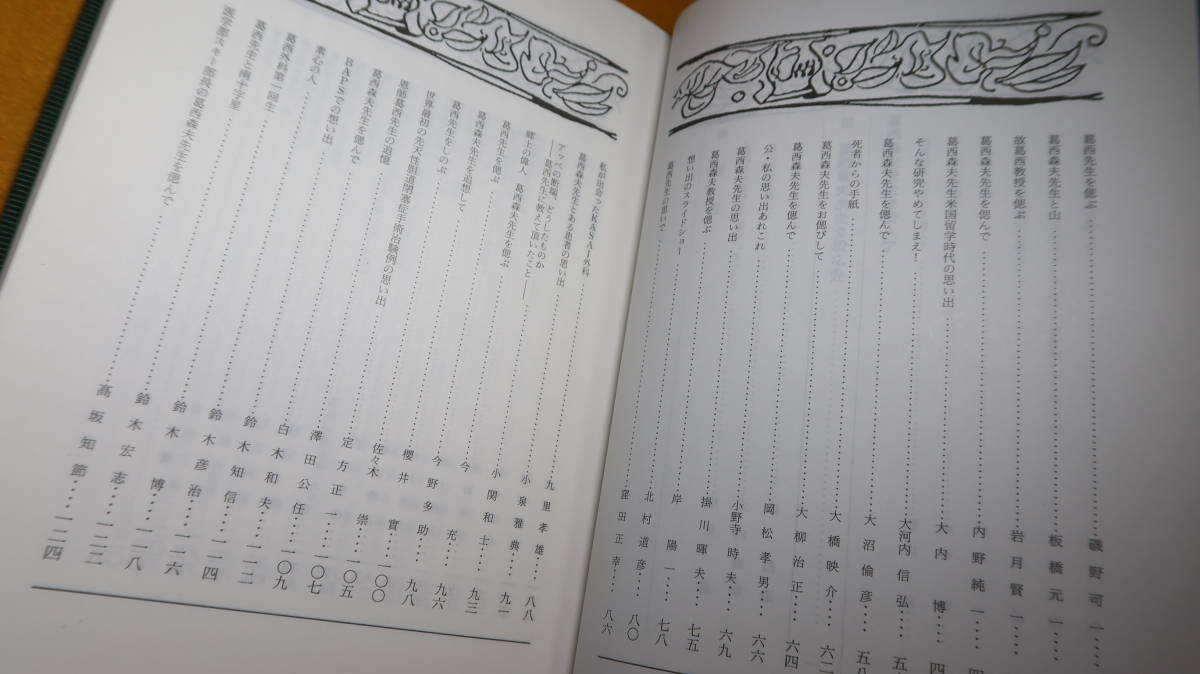 葛西先生を偲ぶ……磯野可一……
葛西森夫先生と山……板橋元一……
故葛西教授を偲ぶ……岩月賢一……
葛西森夫先生を偲んで……内野純一……四
葛西森夫先生米国留学時代の思い出……大内博……四
そんな研究やめてしまえ!……大河内信弘……五
葛西森夫先生を偲んで……大沼倫彦……五八
死者からの手紙……大橋映介……六二
葛西森夫先生をお偲びして……大柳治正……六四
葛西森夫先生を偲んで……岡松孝男……六六
公・私の思い出あれこれ……小野寺時夫……六九
葛西森夫先生の思い出……掛川暉夫……七五
葛西森夫教授を偲ぶ……岸陽一……七八
想い出のスライドショー……北村道彦……八〇
葛西先生の思いで……窪田正幸……八六
私が出会ったKASAI外科……九里孝雄……八八
葛西森夫先生とある患者の思い出……小泉雅典……九一
アッペの断端、どうしたものか
――葛西先生に教えて頂いたこと――……小関和士……九三
郷土の偉人 葛西森夫先生を偲ぶ……今充……九六
葛西先生を偲ぶ……今野多助……九八
葛西森夫先生を追想して……櫻井實……一〇〇
葛西先生をしのぶ……佐々木崇……一〇五
世界最初の先天性胆道閉塞症手術治験例の思い出……定方正一……一〇七
恩師葛西先生の追憶……澤田公任……一〇九
葛西森夫先生を偲んで……白木和夫……一一二
BAPSでの想い出……鈴木知信……一一四
素心の人……鈴木彦治……一一六
葛西外科第一回生……鈴木博……一一八
葛西先生と南十字星……鈴木宏志……一二二
医学部スキー部長の葛西森夫先生を偲んで……高坂知節……一二四